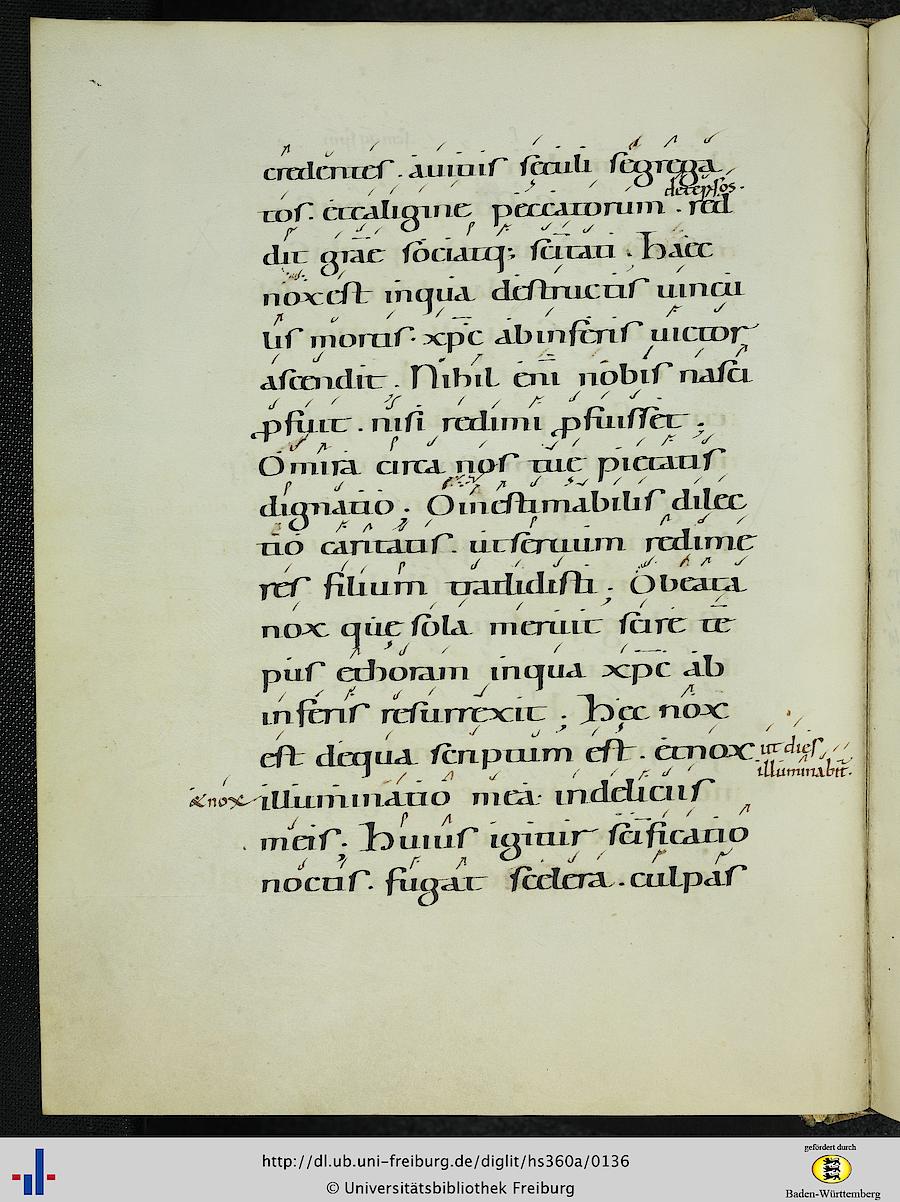 credentes . auitiis seculi segrega
detersos.
tos. etcaligine peccatorum . red
dit grae sociatq; scitati . haec
nox est inqua destructis uincu
lis mortis . xpc abinferis uictor
ascendit . Nihil eni nobis nasci
pfuit . nisi redimi pfuisset .
O mira circa nos tue pietatis
dignatio . O inestimabilis dilec
tio caritatis . utseruum redime
res filium tradidisti ; O beata
nox que sola meruit scire te
pus ethoram inqua xpc ab
inferis resurrexit ; hec nox
est dequa scriptum est . etnox ut dies
illuminabit.
& nox illuminatio mea : indeliciis
meis ; huius igitur scificatio
noctis . fugat scelera . culpas
http://dl.ub.uni-freiburg.de/diglit/hs360a/0136
© Universitätsbibliothek Freiburg
gefördert durch
Baden-Württemberg